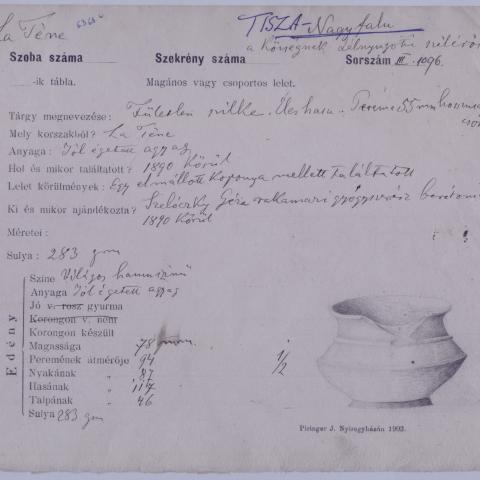 La Tène
TISZA-Nagyfalu
a községnek délnyugoti
Szoba száma Szekrény száma Sorszám III. 1096.
-ik tábla. Magános vagy csoportos lelet.
Tárgy megnevezése: Fületlen szilke. Éles hasu. Pereme 55
Mely korszakból? La Tène
Anyaga: Jól égetett agyag
Hol és mikor találtatott? 1890 Körül
Lelet körülmények: Egy elmállott koponya mellett találtatott
Ki és mikor ajándékozta? Szelóczky Géza rakamazi gyógyszerész
1890 Körül
Méretei:
Sulya: 283 gm
Edény
Szine Világos hamuszinű
Anyaga Jól égetett agyag
Jó v. rosz gyurma
Korongon v. nem
Korongon készült
Magassága 78 mm.
Peremének átmérője 94
Nyakának " 87
Hasának " 117
Talpának " 46
Sulya 283 gm
1/2
Piringer J. Nyiregyházán 1903.